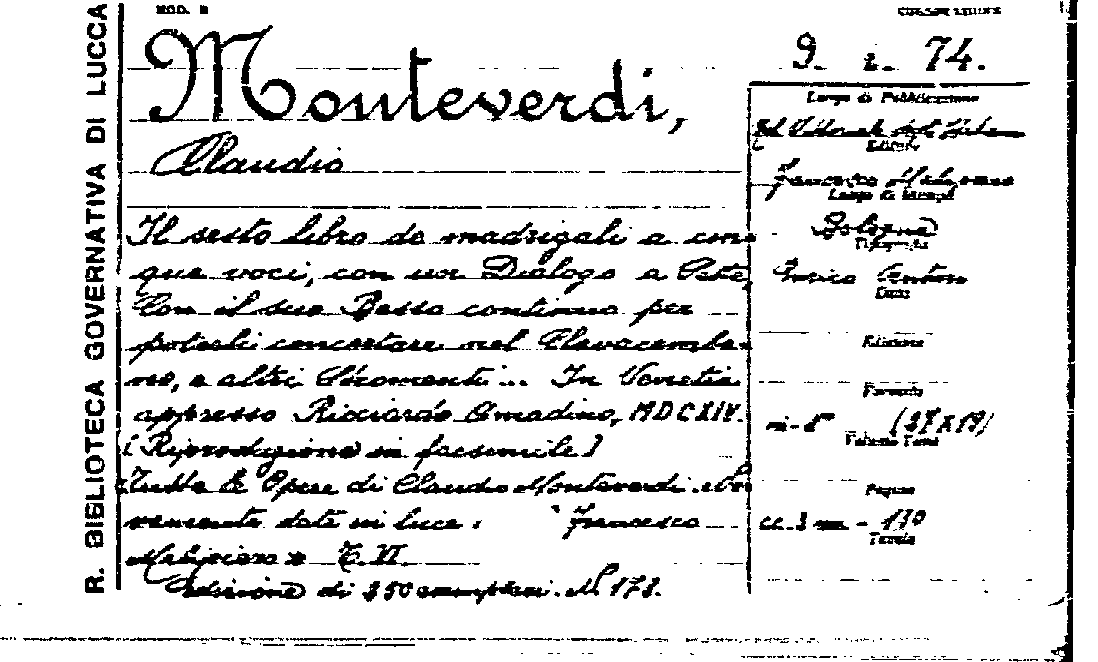 R. BIBLIOTECA GOVERNATIVA DI LUCCA
MOD. B
9. 2. 74.
Monteverdi,
Claudio
Il sesto libro de madrigali a cin-
que voci, con un Dialogo a Sette,
Con il suo Basso continuo per
poterli concertare nel Clavacemba-
no, e altri Stromenti... In Venetia
appresso Ricciardo Amadino, MDCXIV.
(Riproduzione in facsimile)
Tutte le Opere di Claudio Monteverdi
vamente date in luce Francesco
Malipiero T. VI.
edizione di 250 esemplari. N. 173.
Luogo di Pubblicazione
Editore
Francesco Malipiero
Luogo di stampa
Bologna
Tipografia
Enrico
Data
Edizione
Formato
in-8° (27x19)
Volume Tomo
Pagine
cc. 3 nn - 130
Tavole